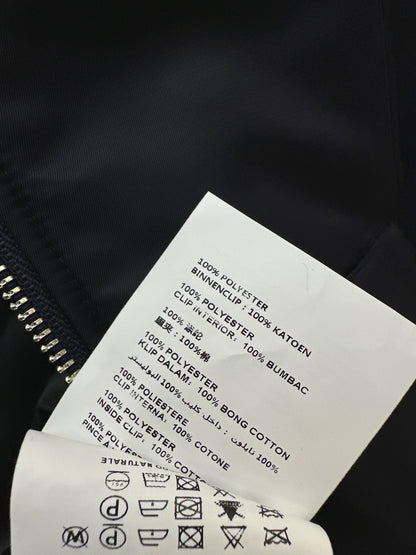 100% POLYESTER
BINNENCLIP : 100% KATOEN
100% POLYESTER
CLIP INTERIOR : 100% BUMBAC
100% 涤纶
里夹 : 100%棉
100% POLYESTER
KLIP DALAM : 100% BONG COTTON
100% نايلون : داخل كليب 100% البوليستر
100% POLIESTERE
CLIP INTERNA : 100% COTONE
100% POLYESTER
INSIDE CLIP : 100% COTTON
100% POLYES
PINCE
NATURALE
P
P
W